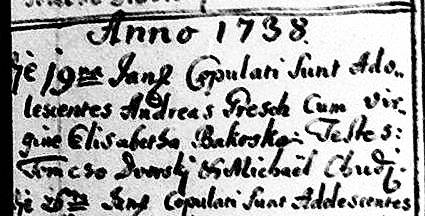 Anno 1738.
Die 19ne Janŷ Copulati sunt Ado-
lescentes Andreas Gresch Cum Vir-
gine Elisabetha Bakoska. Testes:
Dvorskj & Michaël Chudj.
Die 26ne Janŷ Copulati sunt Adolescentes